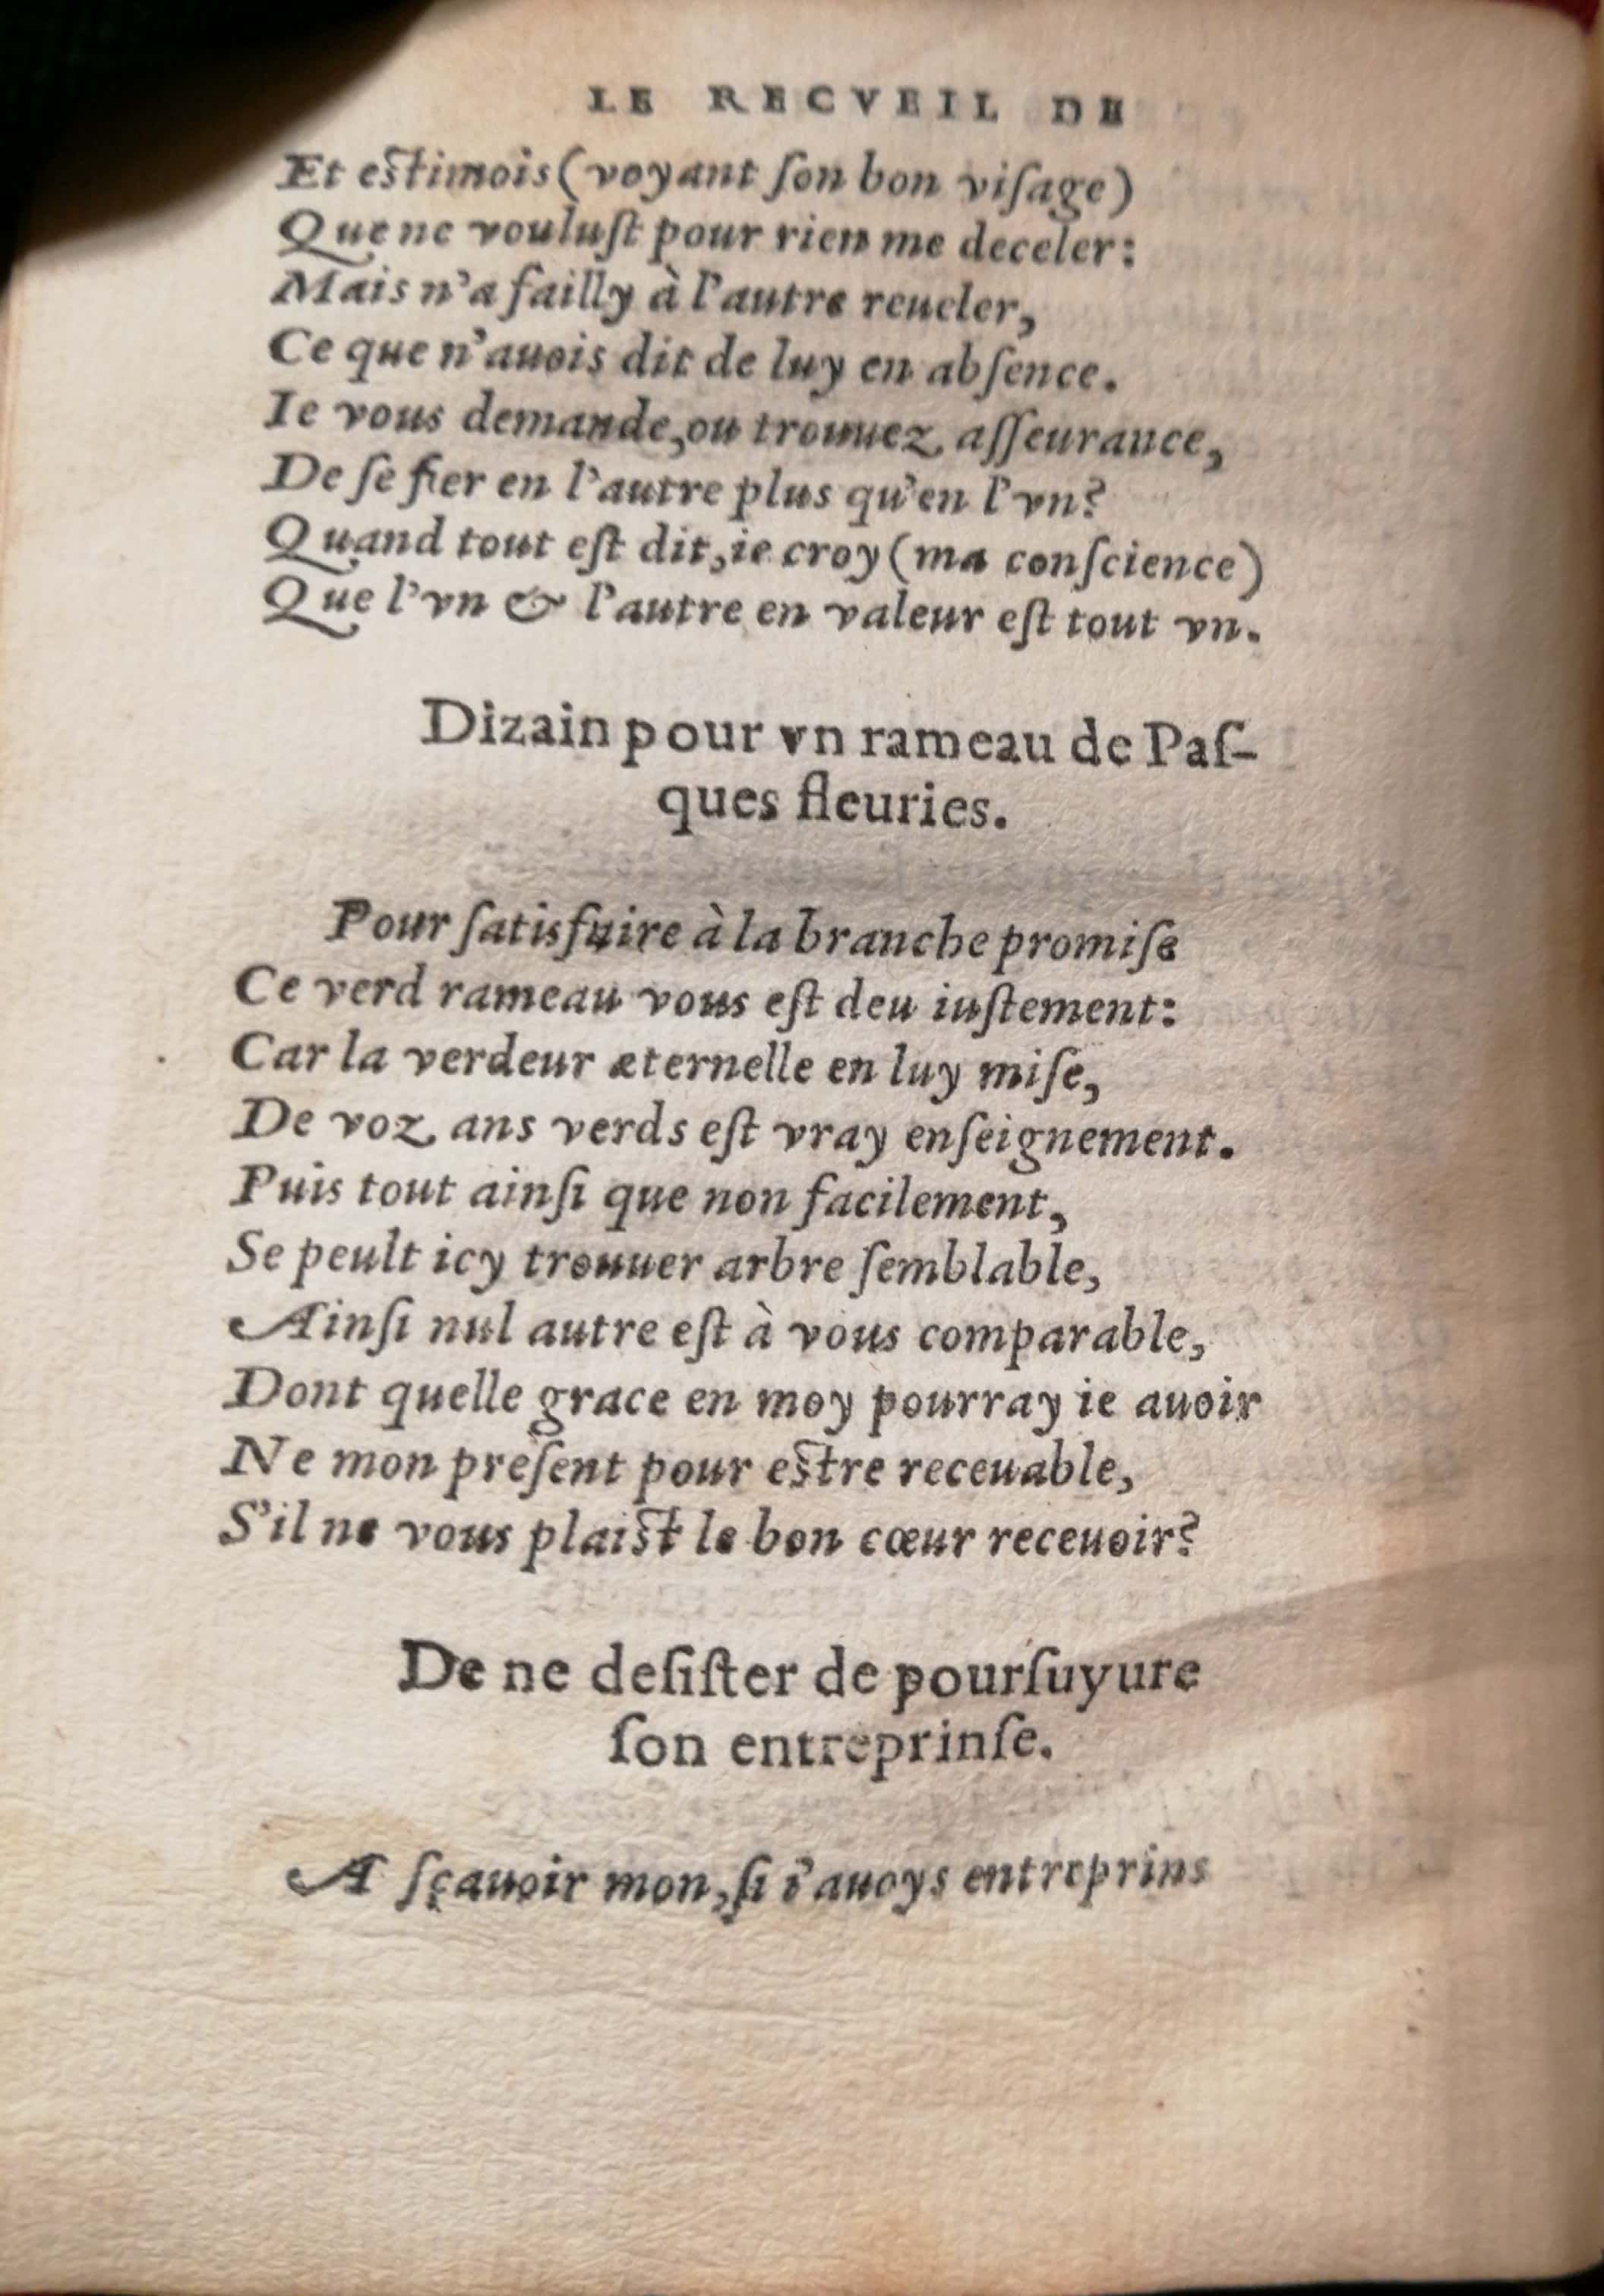 LE RECVEIL DE
Et eſtimois (voyant ſon bon viſage)
Que ne vouluſt pour rien me deceler:
Mais n'a failly à l'autre reueler,
Ce que n'auois dit de luy en abſence.
Ie vous demande, ou trouuez aſſeurance,
De ſe fier en l'autre plus qu'en l'vn?
Quand tout eſt dit, ie croy (ma conſcience)
Que l'vn & l'autre en valeur eſt tout vn.
Dizain pour vn rameau de Paſ-
ques fleuries.
Pour ſatisfaire à la branche promiſe
Ce verd rameau vous eſt deu iuſtement:
Car la verdeur æternelle en luy miſe,
De voz ans verds eſt vray enſeignement.
Puis tout ainſi que non facilement,
Se peult icy trouuer arbre ſemblable,
Ainſi nul autre eſt à vous comparable,
Dont quelle grace en moy pourray ie auoir
Ne mon preſent pour eſtre receuable,
S'il ne vous plaiſt le bon cœur receuoir?
De ne deſiſter de pourſuyure
ſon entreprinſe.
A ſçauoir mon, ſi i'auoys entreprins